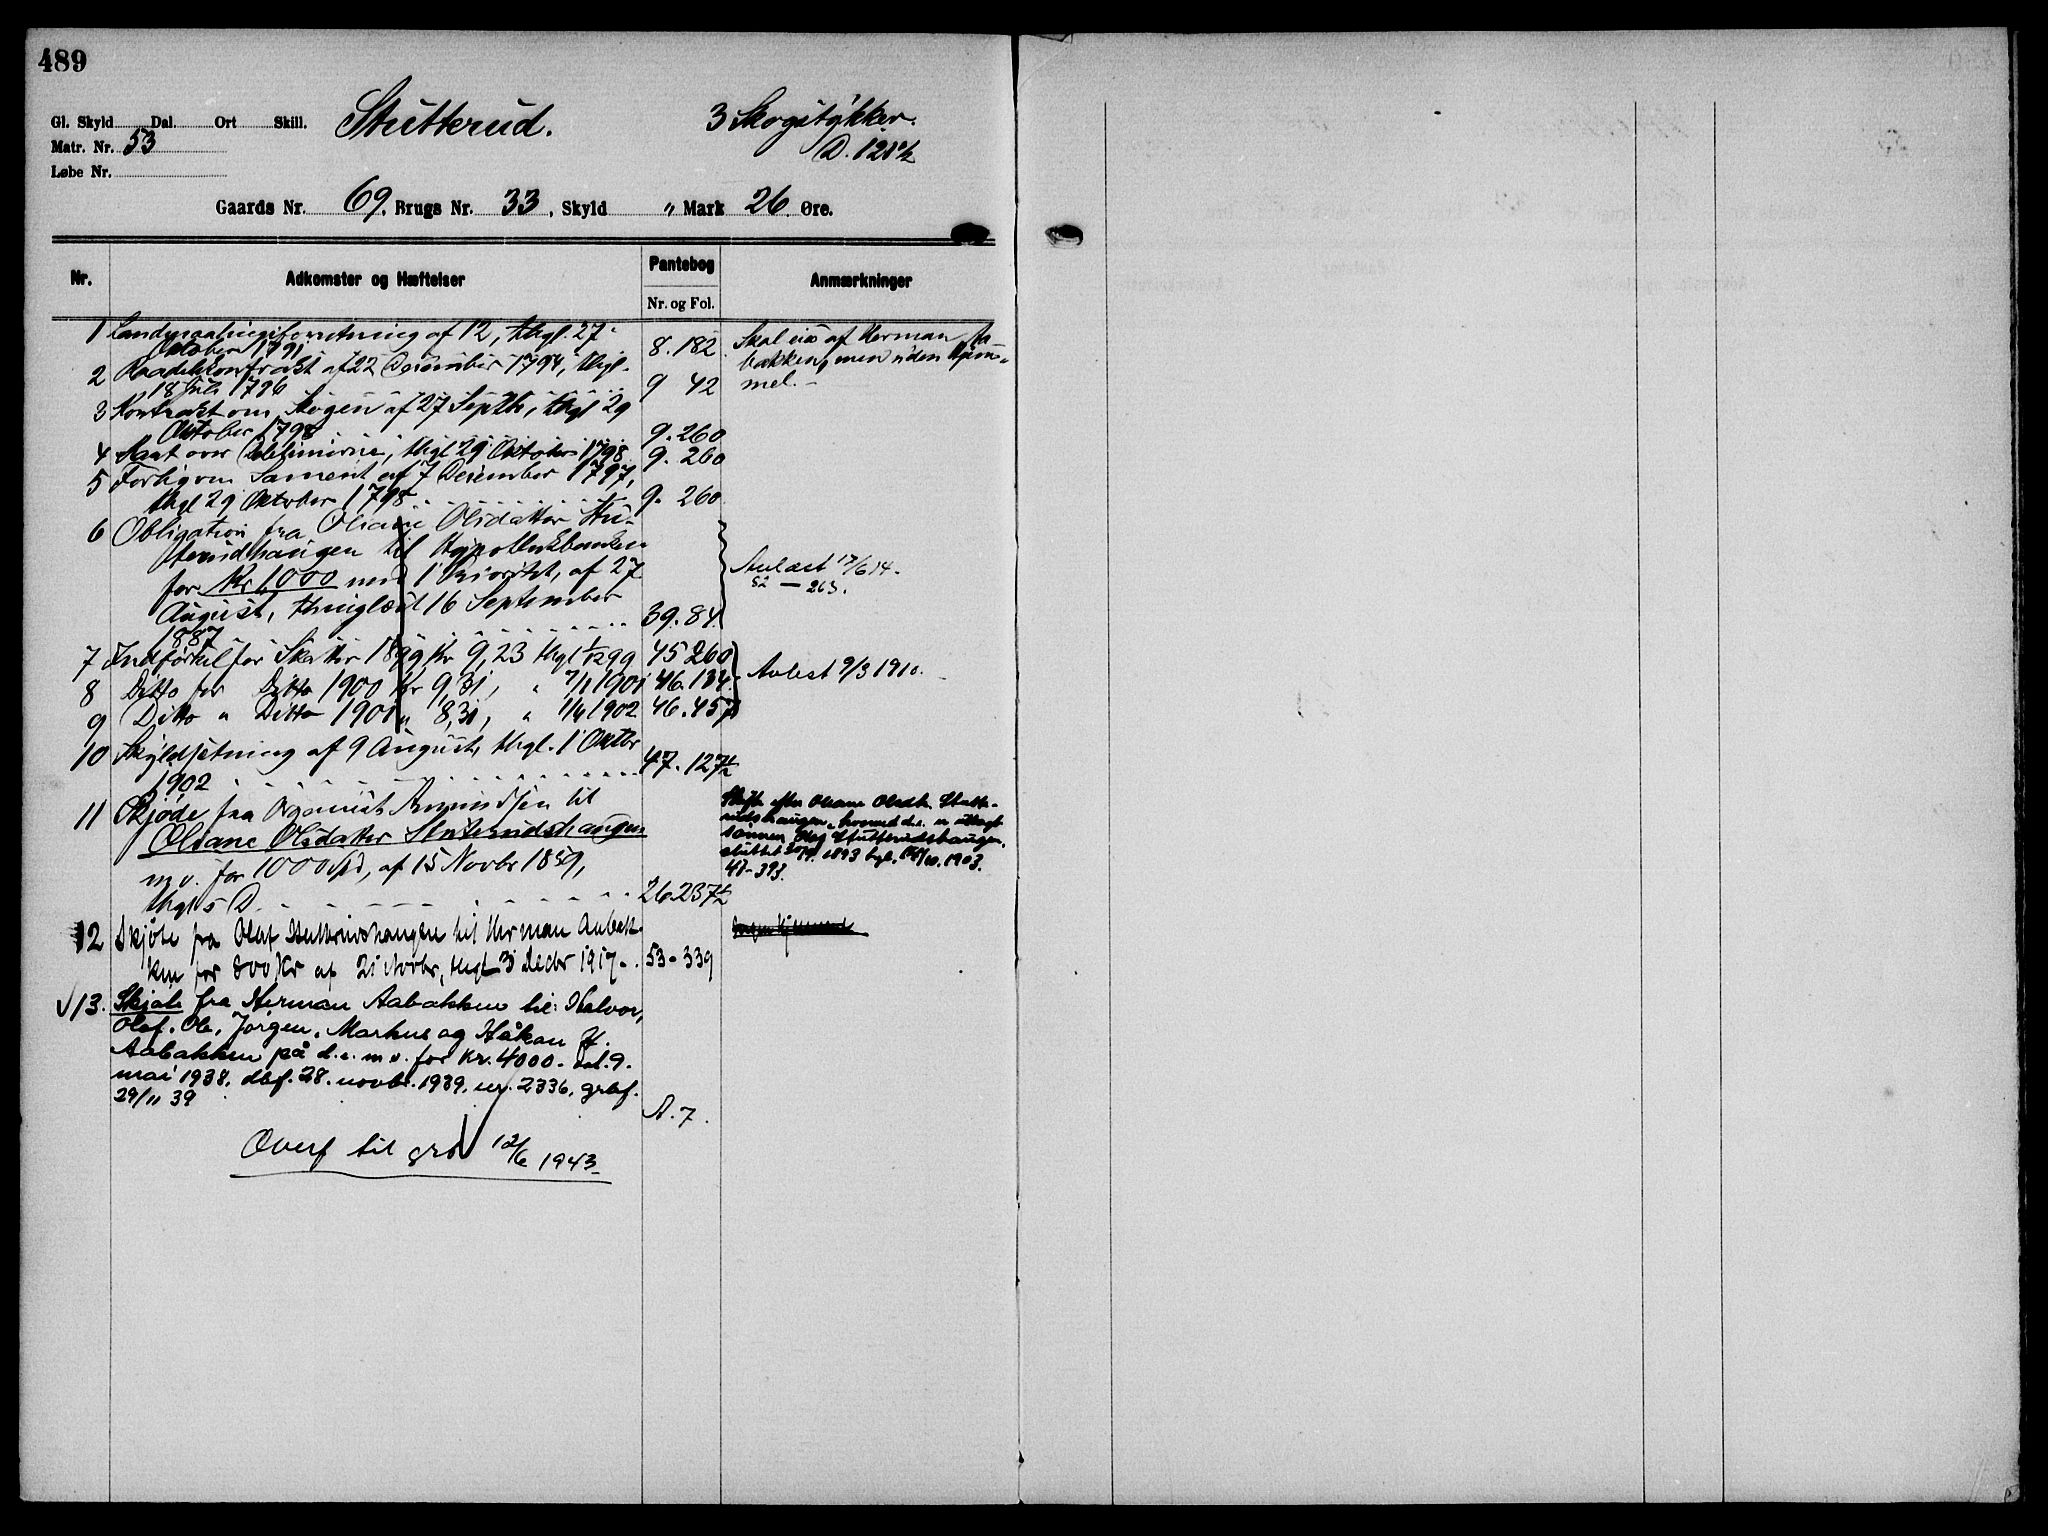 489
Gl. Skyld Dal. Ort Skill. Stutterud. 3 Skogstykker.
Matr. Nr. 53 D. 121 1/2
Løbe Nr.
Gaards Nr. 69, Brugs Nr. 33, Skyld " Mark 26 Øre.
Nr. Adkomster og Hæftelser Pantebog Anmærkninger
Nr. og Fol.
1 af 12, thgl. 27 Skal eies af Herman Aa-
Oktober 1791 8. 182. bakken, men uden Hjem-
2 af 22 December 1794, thgl. mel. -
18 Juli 1796 9 42
3 Kontrakt om Skogen af 27 Septbr, thgl 29
Oktober 1798 9. 260
4 over thgl 29 Oktober 1798 9. 260
5 Forlig om af 7 December 1797,
thgl 29 Oktober 1798 9. 260
6 Obligation fra Oliane Olsdatter Stu-
terudhaugen til Hypothekbanken
for Kr 1000 med 1 Prioritet, af 27 Avlæst 17/6 14.
August, thinglæst 16 September 52 — 263.
1887 39. 84
7 Indførsel for Skatter 1899 Kr 9,23 thgl 1/12 99 45 260
8 Ditto for Ditto 1900 Kr 9,31, " 7/1 1901 46. 134 Avlest 9/3 1910.
9 Ditto " Ditto 1901 " 8,31, " 1/4 1902 46. 457
10 Skyldsetning af 9 August, thgl. 1 Oktbr
1902 47. 127 1/2
11 Skjøde fra Amundsen til Skifte efter Oliane Olsdtr. Stutte-
Oliane Olsdatter Stuterudshaugen rudshaugen, hvorved d.e. er utlagt
m v. for 1000 Spd, af 15 Novbr 1859, sønnen Stutterudshaugen,
thgl s D. 26. 237 1/2 sluttet 1893 tgl. 1903.
47-393.
12 Skjøte fra Olaf Stutterudshaugen til Herman Aabak-
ken for 800 Kr af 21 Novbr, thgl 3 Decbr 1917. 53 - 339
13. Skjøte fra Herman Aabakken til: Halvor,
Olaf, Ole, Jørgen, Markus og Håkon H.
Aabakken på d.e. m v. for kr. 4000. dat. 9.
mai 1938, dbf. 28. novbr. 1939, nr. 2336, grbf.
29/11 39 A. 7.
Overf til grb 12/6 1943